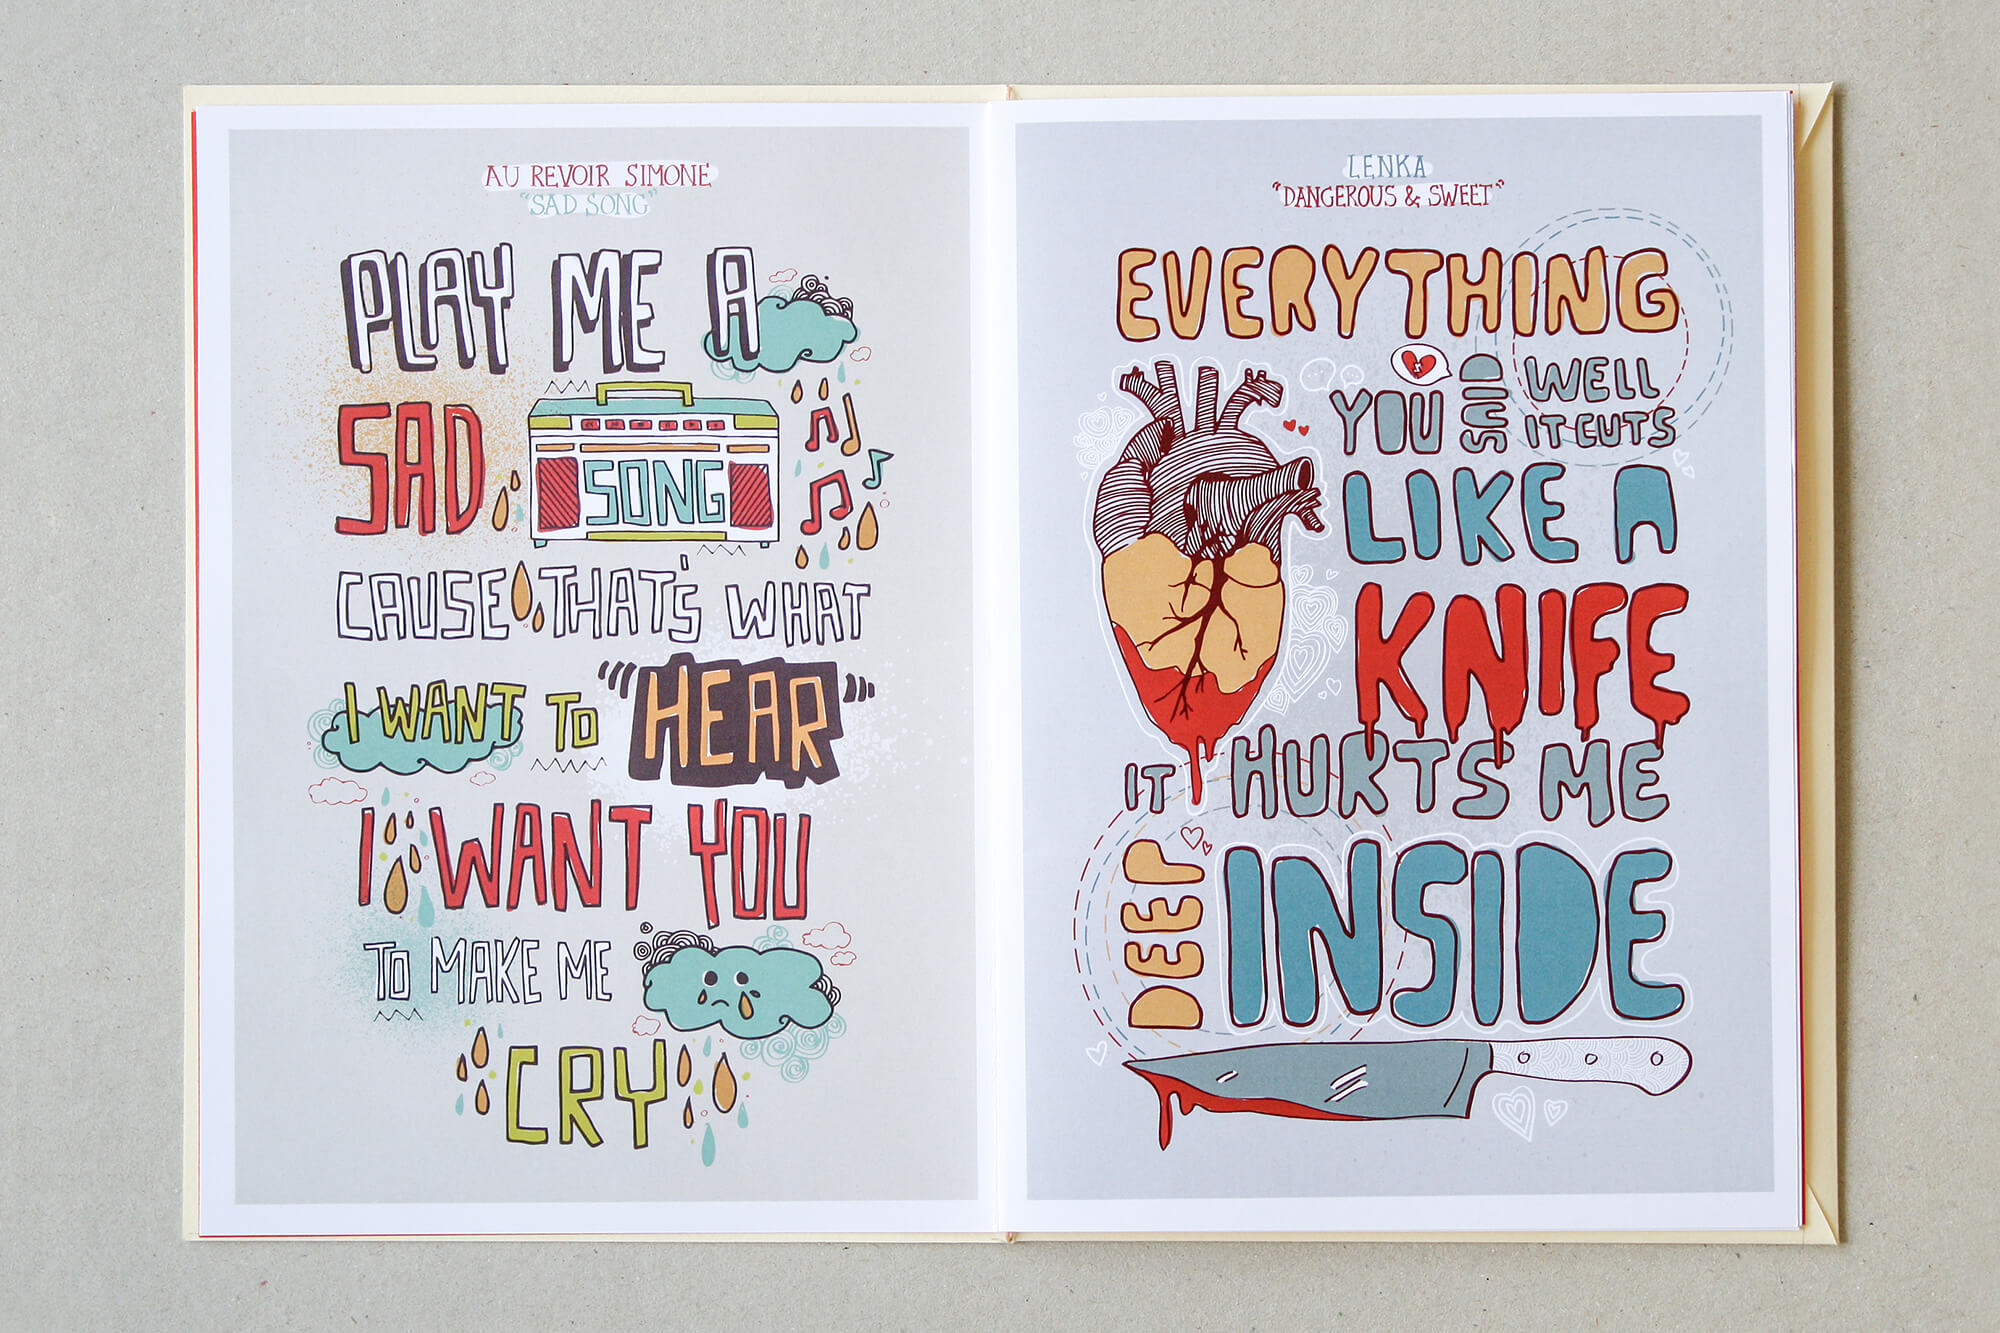 AU REVOIR SIMONE
"SAD SONG"
PLAY ME A
SAD SONG
CAUSE THAT'S WHAT
I WANT TO "HEAR"
I WANT YOU
TO MAKE ME
CRY
LENKA
"DANGEROUS & SWEET"
EVERYTHING
YOU SAID WELL
IT CUTS
LIKE A
KNIFE
IT HURTS ME
DEEP INSIDE